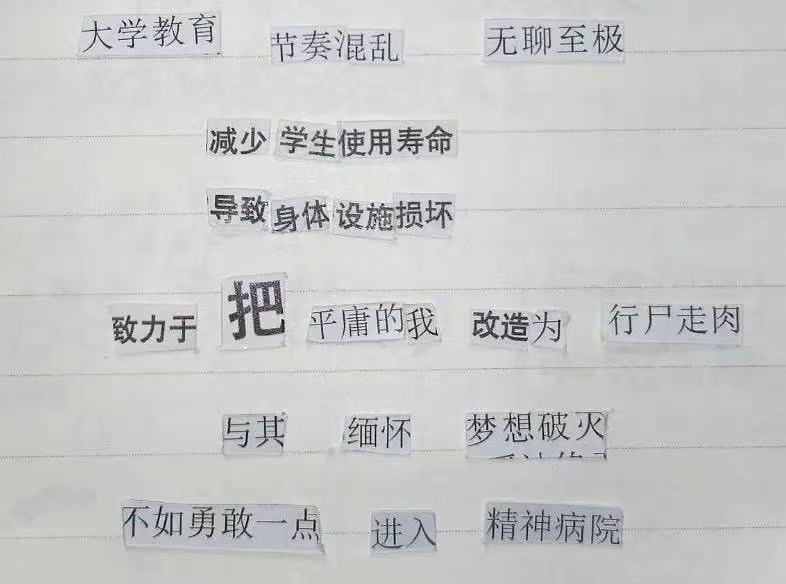 大学教育 节奏混乱 无聊至极
减少 学生使用寿命
导致 身体 设施损坏
致力于 把 平庸的我 改造为 行尸走肉
与其 缅怀 梦想破灭
不如勇敢一点 进入 精神病院